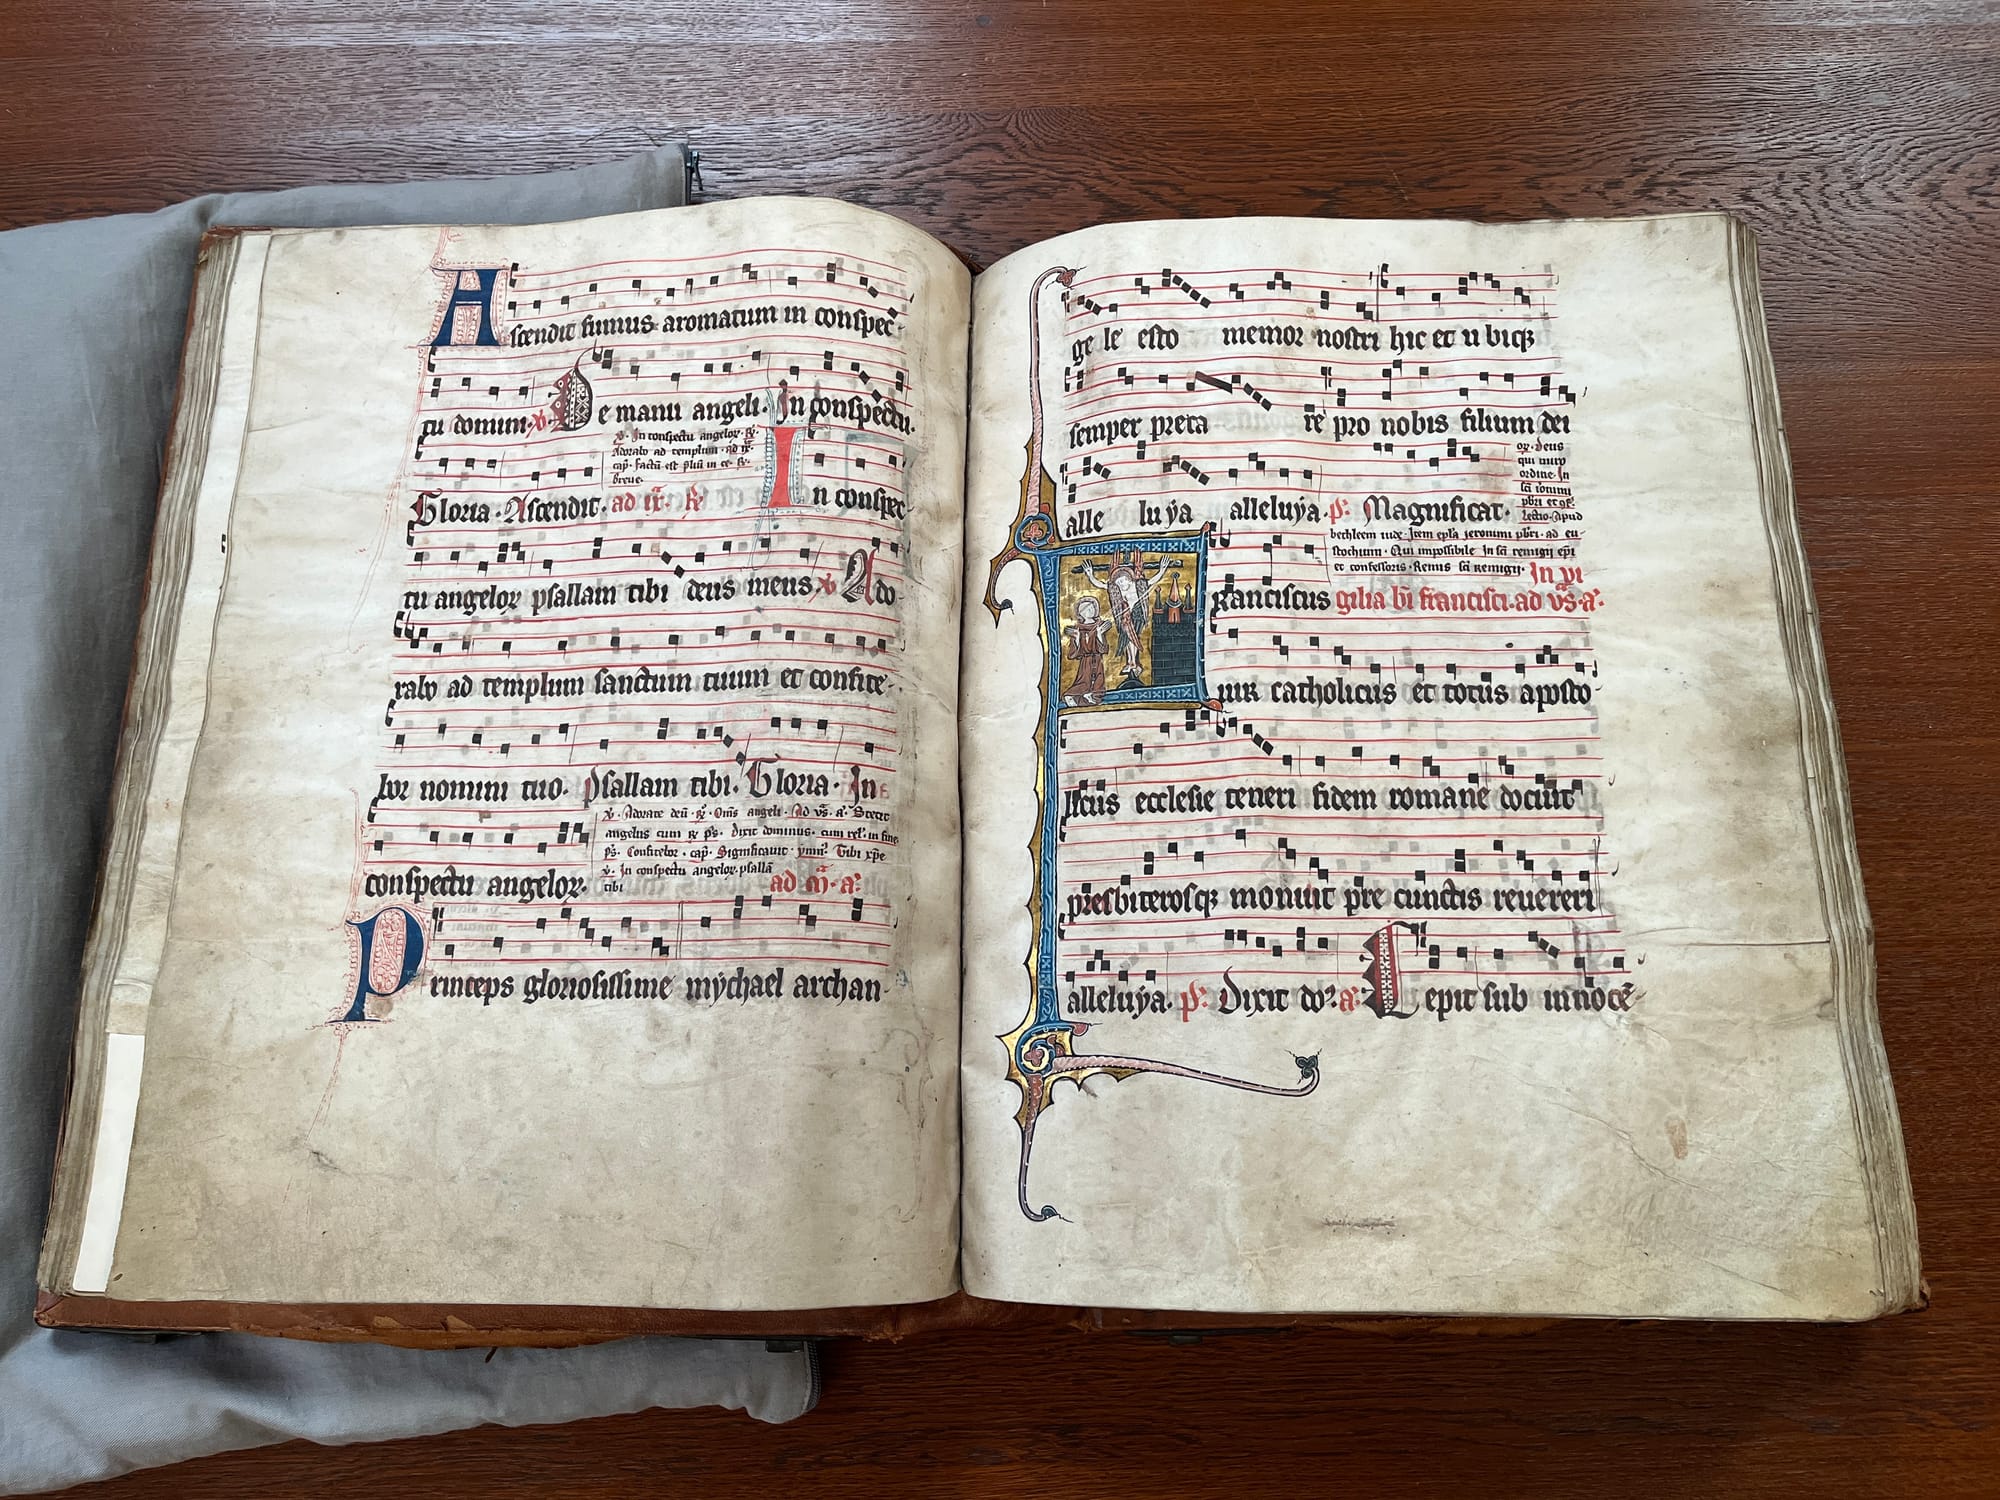 Ascendit fumus aromatum in conspec-
tu domini. V. De manu angeli. In conspectu.
V. In conspectu angelor. R.
Adorabo ad templum. ad ix.
cap. Factum est plium in ce. R.
breve.
Gloria. Ascendit. ad ix. R. In conspec-
tu angelor psallam tibi deus meus. V. Ado-
rabo ad templum sanctum tuum et confite-
bor nomini tuo. Psallam tibi. Gloria. In
V. Adorate deū. R. Oms angeli. Ad vs. a. Stetit
angelus cum R. ps. Dixit dominus. cum rel. in fine
ps. Confitebor. cap. Significavit. ymn. Tibi xpe
v. In conspectu angelor. psallā
tibi
conspectu angelor. ad m. a.
Princeps gloriosissime mychael archan-
ge le esto memor nostri hic et u bicq
semper preca re pro nobis filium dei
or. Deus
qui miro
ordine. In
alle lu ya alleluya. p. Magnificat.
Lectio. Apud
bethleem iude. Item epla jeronimi pbri. ad eu-
stochium. Qui impossibile In sci remigii epi
et confessoris. Remis sci Remigii. In vi
Franciscus gilia bi francisci. ad vs. a.
uir catholicus et totus aposto-
licus ecclesie teneri fidem romane docuit
presbiterosq monuit pre cunctis revereri
alleluya. p. Dixit do. a. Cepit sub innocē-